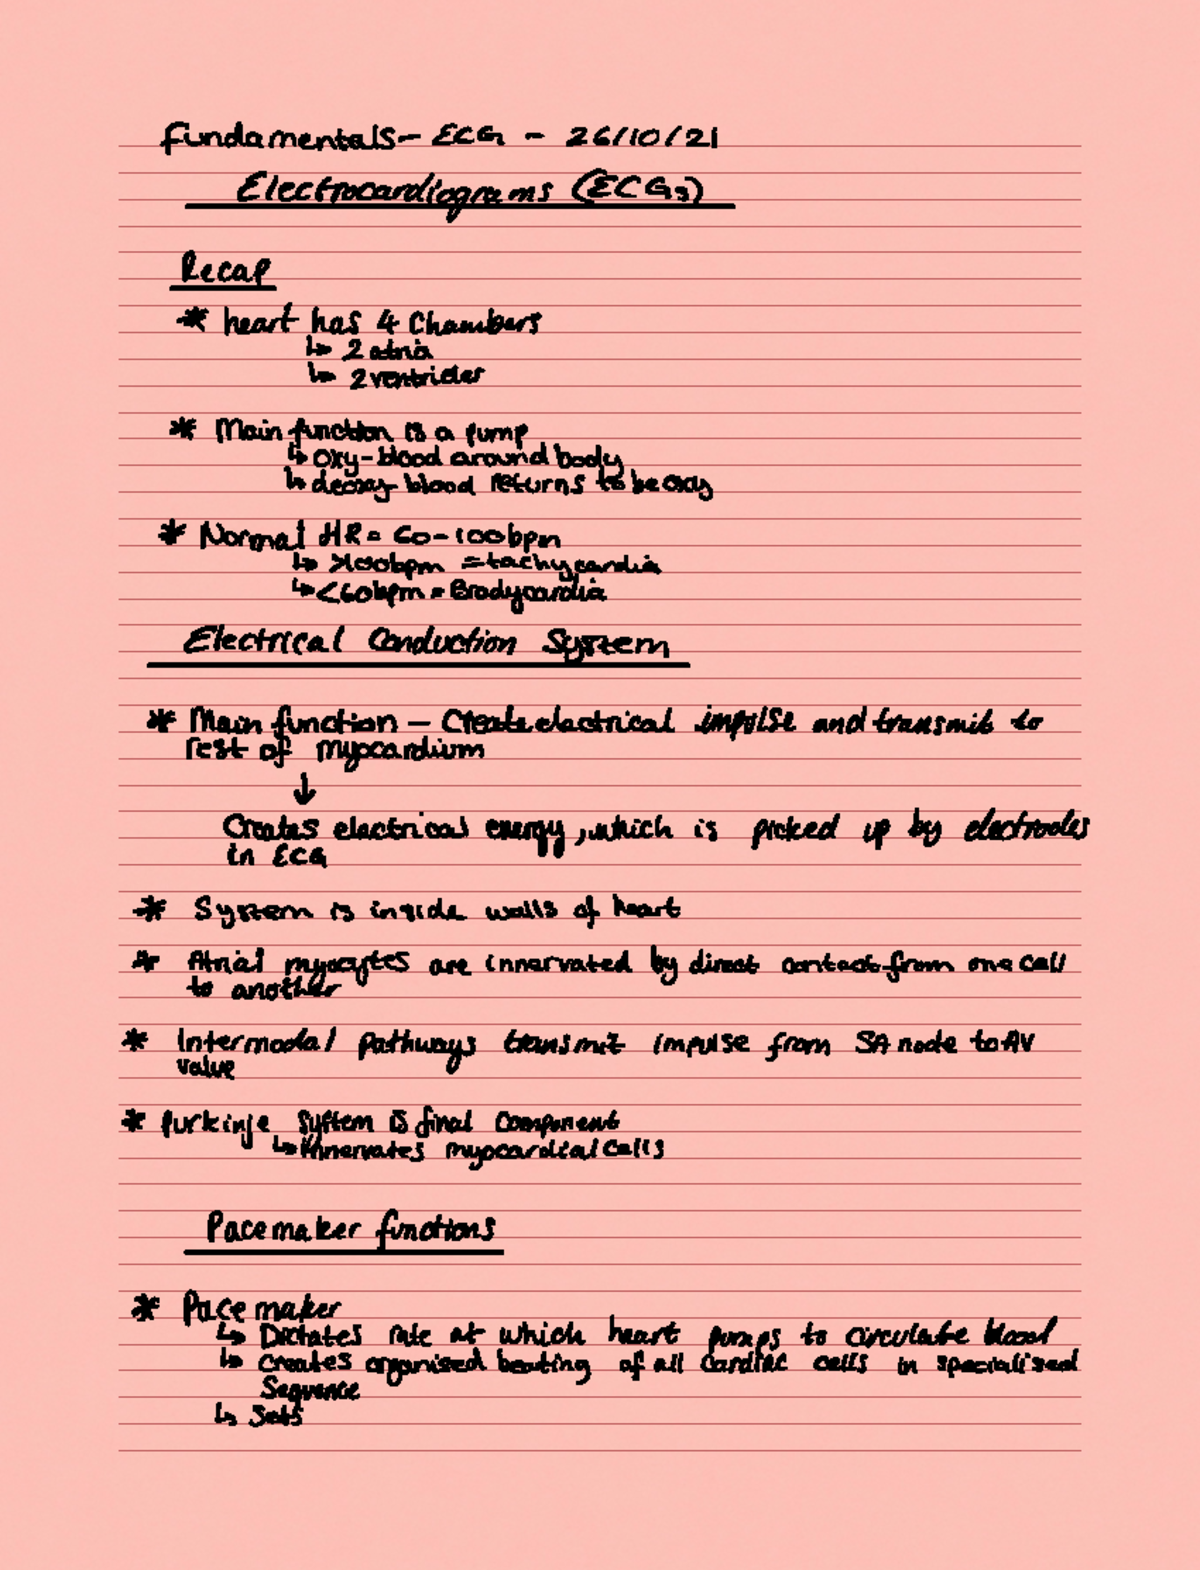 Fundamentals - ECG - 26/10/21
Electrocardiograms (ECGs)
Recap
* heart has 4 Chambers
↳ 2 atria
↳ 2 ventricles
* Main function is a pump
↳ oxy-blood around body
↳ deoxy blood returns to be oxy
* Normal HR = 60-100bpm
↳ >100bpm = tachycardia
↳ <60bpm = Bradycardia
Electrical Conduction System
* Main function - Create electrical impulse and transmit to
rest of myocardium
↓
Creates electrical energy, which is picked up by electrodes
in ECG
* System is inside walls of heart
* Atrial myocytes are innervated by direct contact from one cell
to another
* Intermodal pathways transmit impulse from SA node to AV
value
* Purkinje system is final component
↳ Innervates myocardial cells
Pacemaker functions
* Pacemaker
↳ Dictates rate at which heart pumps to circulate blood
↳ creates organised beating of all cardiac cells in specialised
Sequence
↳ Sets